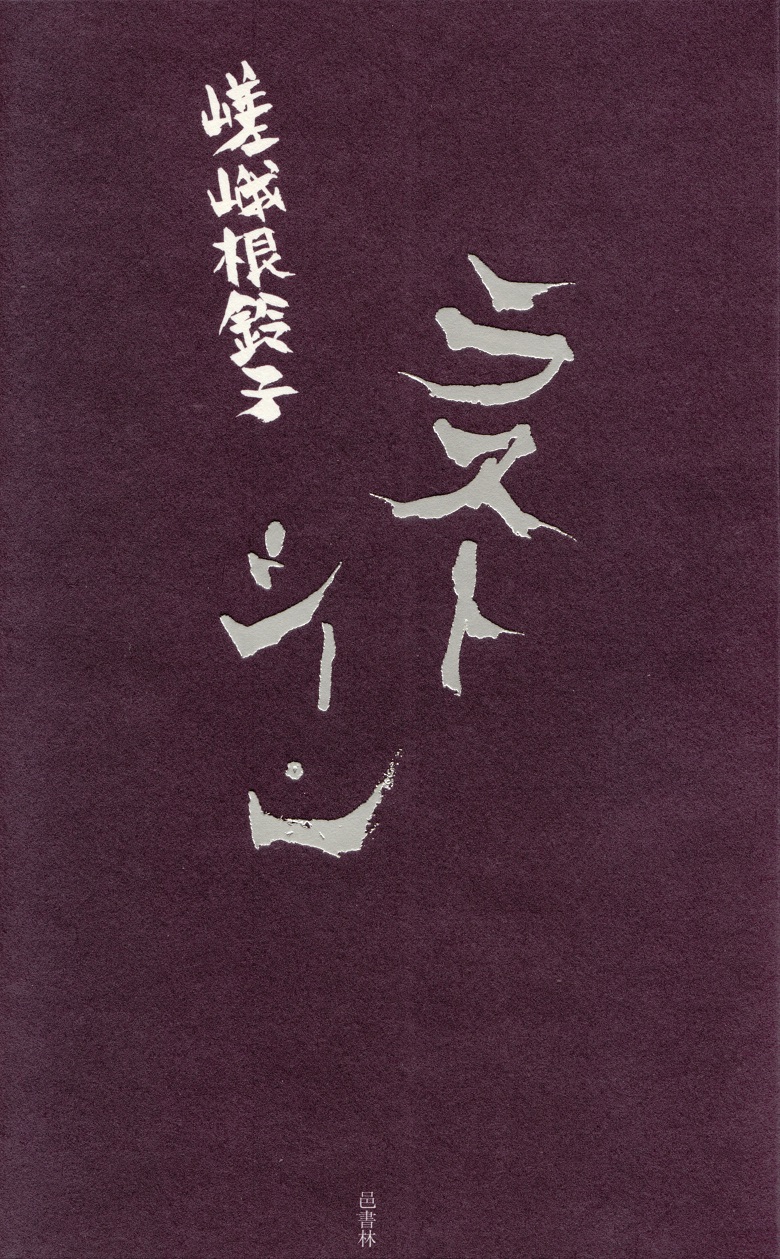 ラスト
シーン
嵯峨根鈴子
邑書林